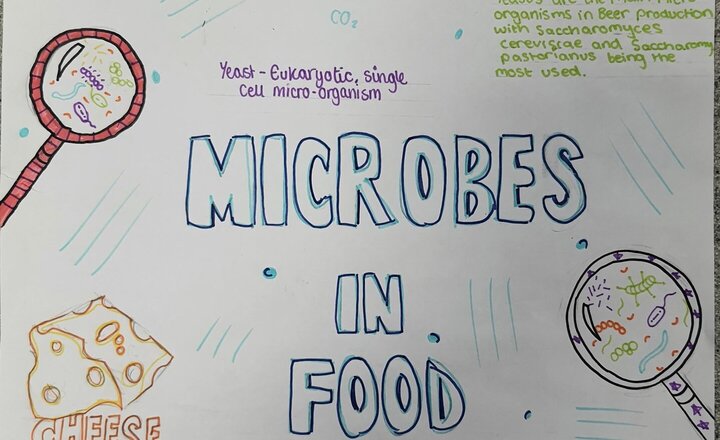 CO₂
Yeasts are the main micro
organisms in Beer production
with Saccharomyces
cereviscae and Saccharomy
pastorianus being the
most used.
Yeast - Eukaryotic, single
cell micro-organism
MICROBES
IN
FOOD
CHEESE